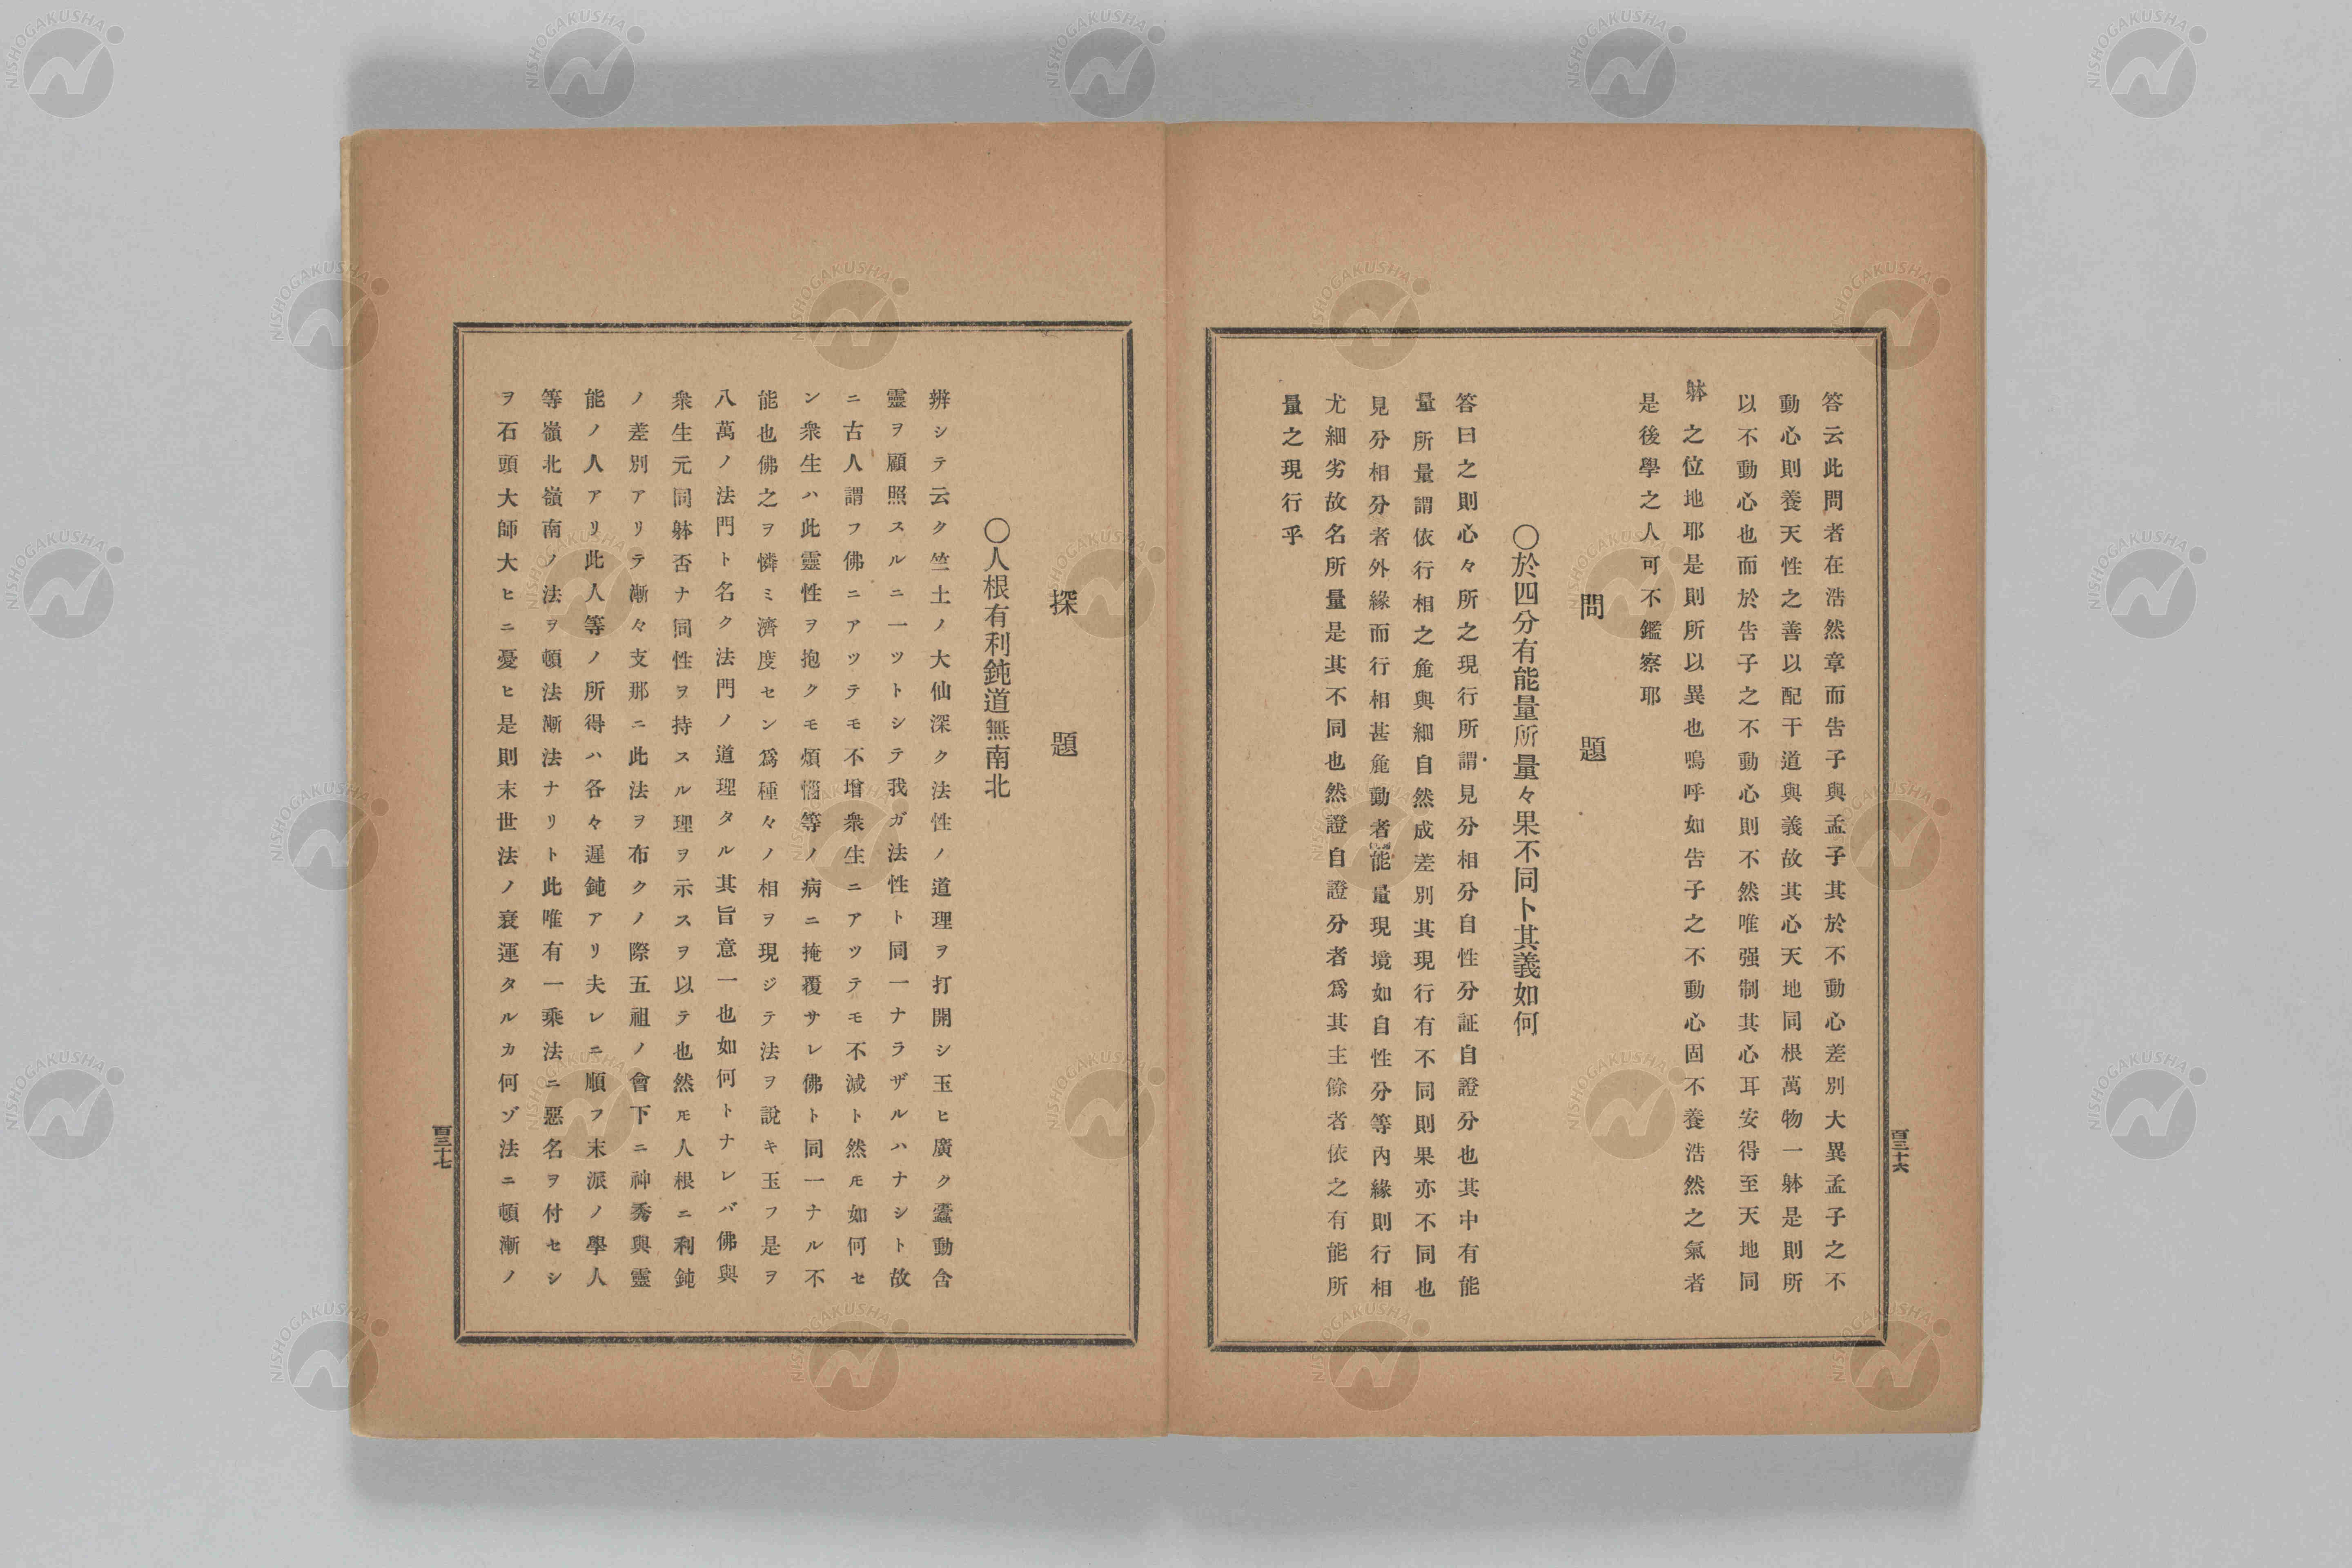 答云此問者在浩然章而告子與孟子其於不動心差別大異孟子之不
動心則養天性之善以配干道與義故其心天地同根萬物一躰是則所
以不動心也而於告子之不動心則不然唯强制其心耳安得至天地同
躰之位地耶是則所以異也鳴呼如告子之不動心固不養浩然之氣者
是後學之人可不鑑察耶
問題
○於四分有能量所量々果不同卜其義如何
答曰之則心々所之現行所謂見分相分自性分証自證分也其中有能
量所量謂依行相之麁與細自然成差別其現行有不同則果亦不同也
見分相分者外緣而行相甚麁動者能量現境如自性分等內緣則行相
尤細劣故名所量是其不同也然證自證分者爲其主餘者依之有能所
量之現行乎
百三十六
探題
○人根有利鈍道無南北
辨シテ云ク竺土ノ大仙深ク法性ノ道理ヲ打開シ玉ヒ廣ク蠢動含
靈ヲ顧照スルニ一ツトシテ我ガ法性ト同一ナラザルハナシト故
ニ古人謂フ佛ニアツテモ不增衆生ニアツテモ不減ト然𪜈如何セ
ン衆生ハ此靈性ヲ抱クモ煩惱等ノ病ニ掩覆サレ佛ト同一ナル不
能也佛之ヲ憐ミ濟度セン爲種々ノ相ヲ現ジテ法ヲ說キ玉フ是ヲ
八萬ノ法門ト名ク法門ノ道理タル其旨意一也如何トナレバ佛與
衆生元同躰否ナ同性ヲ持スル理ヲ示スヲ以テ也然𪜈人根ニ利鈍
ノ差別アリテ漸々支那ニ此法ヲ布クノ際五祖ノ會下ニ神秀與靈
能ノ人アリ此人等ノ所得ハ各々遲鈍アリ夫レニ順フ末派ノ學人
等嶺北嶺南ノ法ヲ頓法漸法ナリト此唯有一乘法ニ惡名ヲ付セシ
ヲ石頭大師大ヒニ憂ヒ是則末世法ノ衰運タルカ何ゾ法ニ頓漸ノ
百三十七
NISHOGAKUSHA